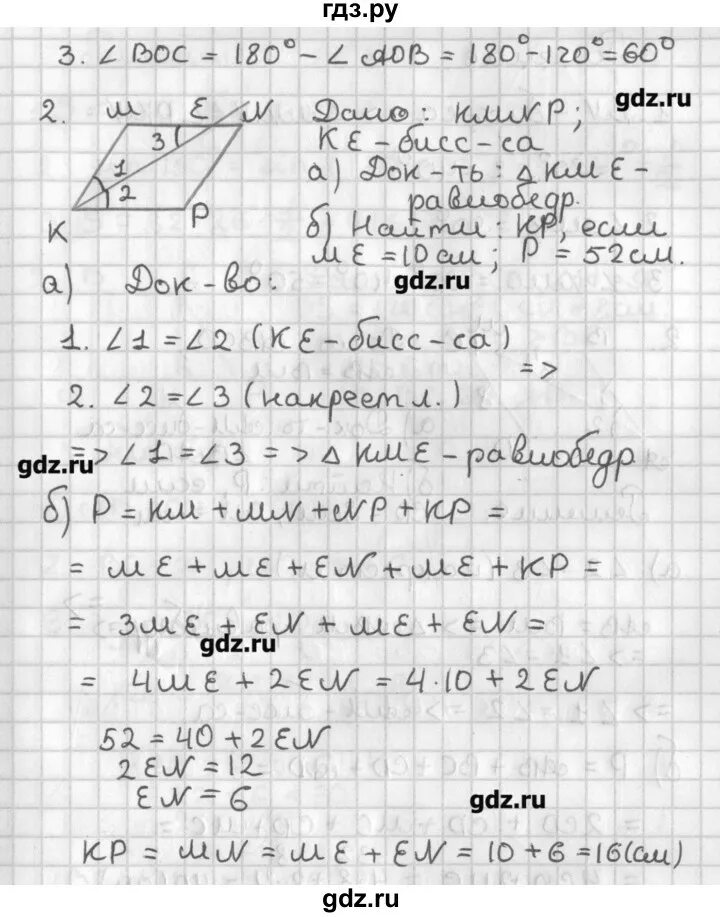 гдз.ру
3. ∠ BOC = 180° - ∠ AOB = 180° - 120° = 60°
gdz.ru
2. M E N Дано: KMNP;
3 KE - бисс-са
1 а) Док-ть: △ KME -
2 равнобедр.
K P б) Найти: KP, если
ME = 10 см; P = 52 см.
gdz.ru
а) Док-во:
1. ∠1 = ∠2 (KE - бисс-са)
=>
2. ∠2 = ∠3 (накрест л.)
gdz.ru
=> ∠1 = ∠3 => △ KME - равнобедр
б) P = KM + MN + NP + KP =
= ME + ME + EN + ME + KP =
= 3ME + EN + ME + EN =
gdz.ru
= 4ME + 2EN = 4·10 + 2EN
52 = 40 + 2EN
2EN = 12
EN = 6
gdz.ru
KP = MN = ME + EN = 10 + 6 = 16(см)
gdz.ru